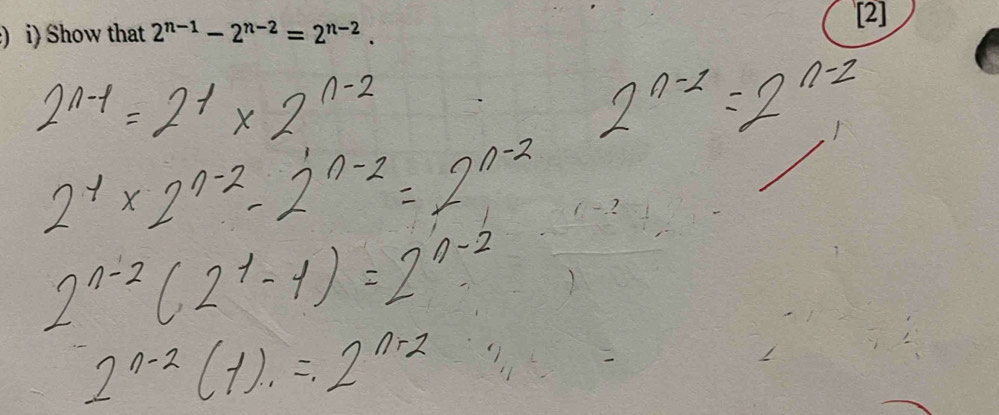 i) Show that 2ⁿ⁻¹ − 2ⁿ⁻² = 2ⁿ⁻² . [2]
2ⁿ⁻¹ = 2¹ × 2ⁿ⁻²
2ⁿ⁻² = 2ⁿ⁻²
2¹ × 2ⁿ⁻² - 2ⁿ⁻² = 2ⁿ⁻²
2ⁿ⁻² (2¹ - 1) = 2ⁿ⁻²
2ⁿ⁻² (1) = 2ⁿ⁻²